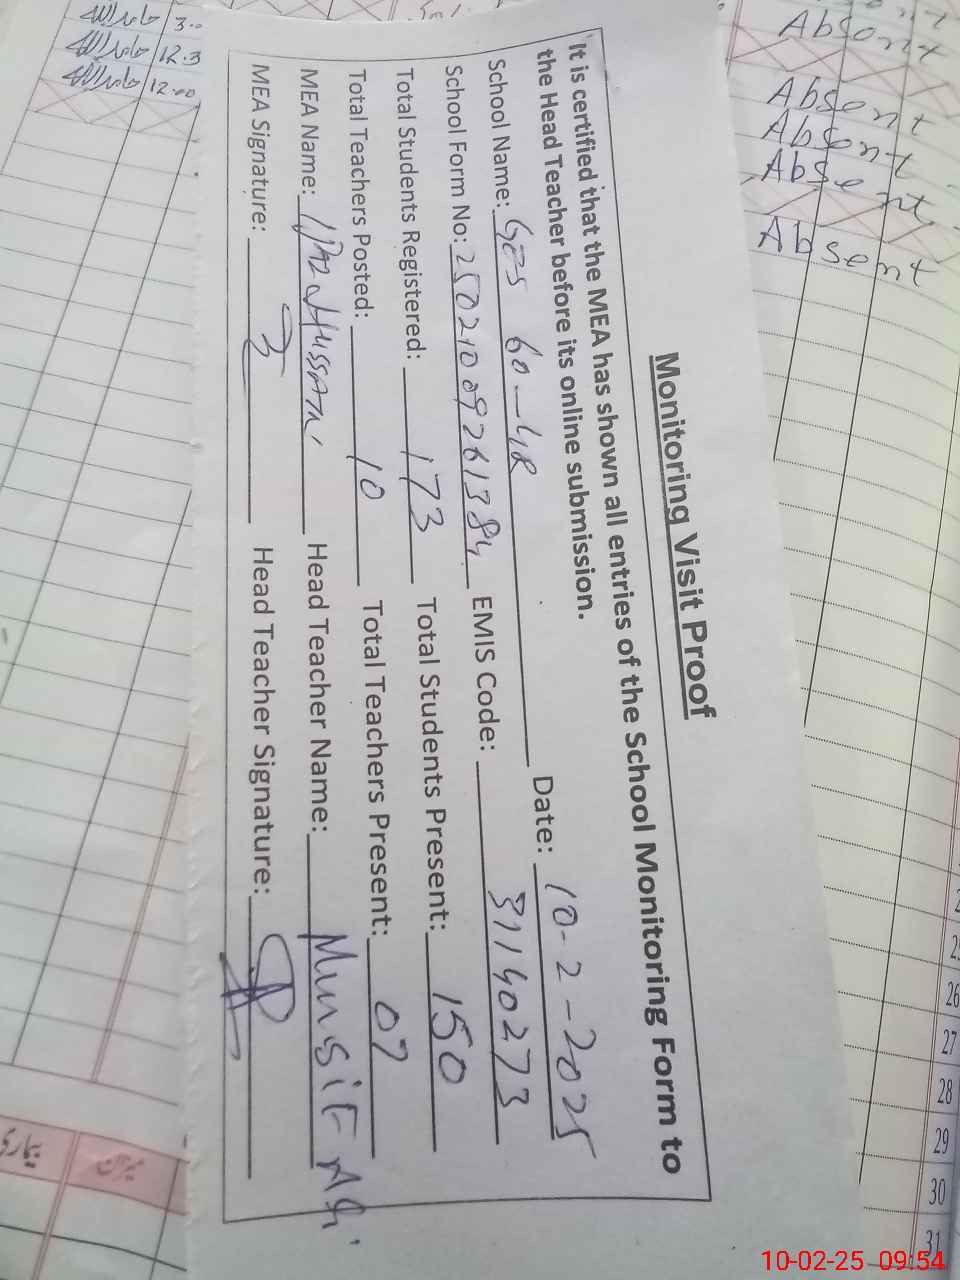 Monitoring Visit Proof
It is certified that the MEA has shown all entries of the School Monitoring Form to
the Head Teacher before its online submission.
School Name: GES 60-4R Date: 10-2-2025
School Form No: 25021009261384 EMIS Code: 31140273
Total Students Registered: 173 Total Students Present: 150
Total Teachers Posted: 10 Total Teachers Present: 07
MEA Name: Hussain Head Teacher Name: Munsif Ali
MEA Signature: Head Teacher Signature:
Absent
Absent
Absent
Absent
Absent
3.00
12.3
12.00
26
27
28
29
30
31
میزان
بیماری
10-02-25 09:54